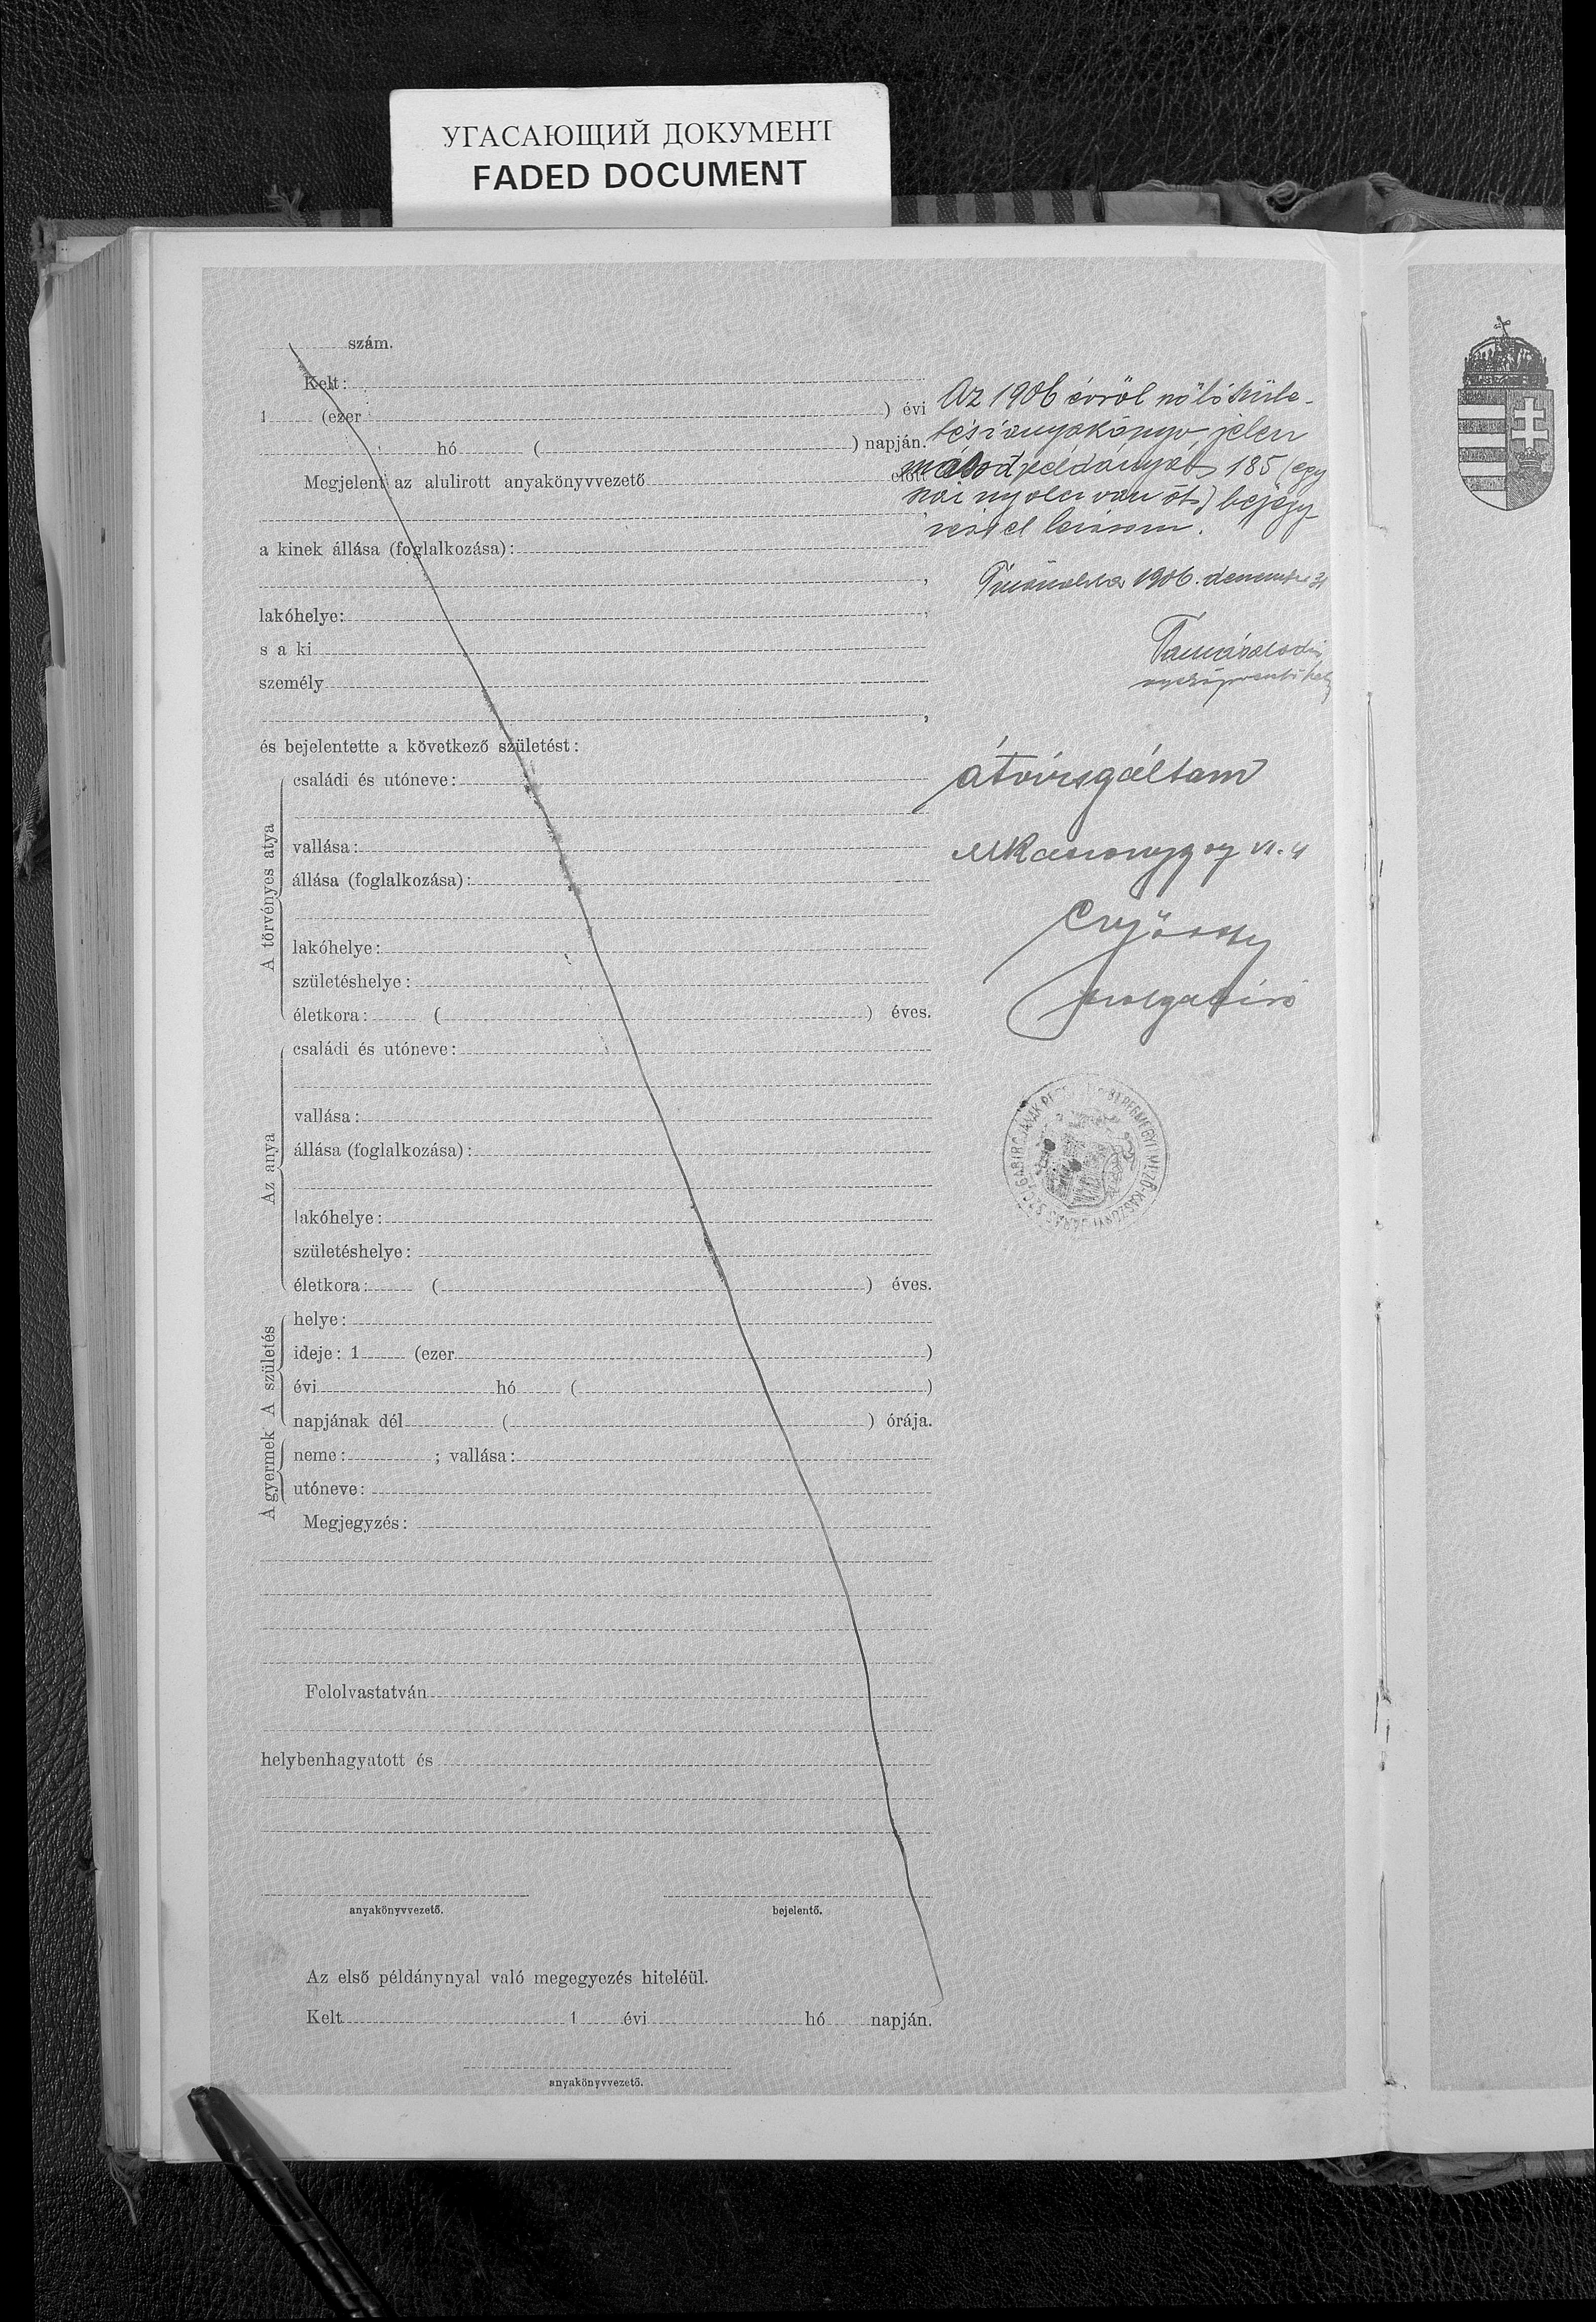 УГАСАЮЩИЙ ДОКУМЕНТ
FADED DOCUMENT
szám.
Kelt:
1 (ezer ) évi
hó ( ) napján.
Megjelent az alulirott anyakönyvvezető előtt
a kinek állása (foglalkozása):
,
lakóhelye: ,
s a ki
személy
,
és bejelentette a következő születést:
A törvényes atya
családi és utóneve:
vallása:
állása (foglalkozása):
lakóhelye:
születéshelye:
életkora: ( ) éves.
Az anya
családi és utóneve:
vallása:
állása (foglalkozása):
lakóhelye:
születéshelye:
életkora: ( ) éves.
A születés
helye:
ideje: 1 (ezer )
évi hó ( )
napjának dél ( ) órája.
A gyermek
neme: ; vallása:
utóneve:
Megjegyzés:
Felolvastatván
helybenhagyatott és
anyakönyvvezető. bejelentő.
Az első példánynyal való megegyezés hiteléül.
Kelt 1 évi hó napján.
anyakönyvvezető.
Az 1906 évről szóló szüle-
tési anyakönyv jelen
másodpéldányát 185 (egy
száz nyolcvan öt) bejegy
zéssel lezárom.
1906. december 31
átvizsgáltam
szolgabíró